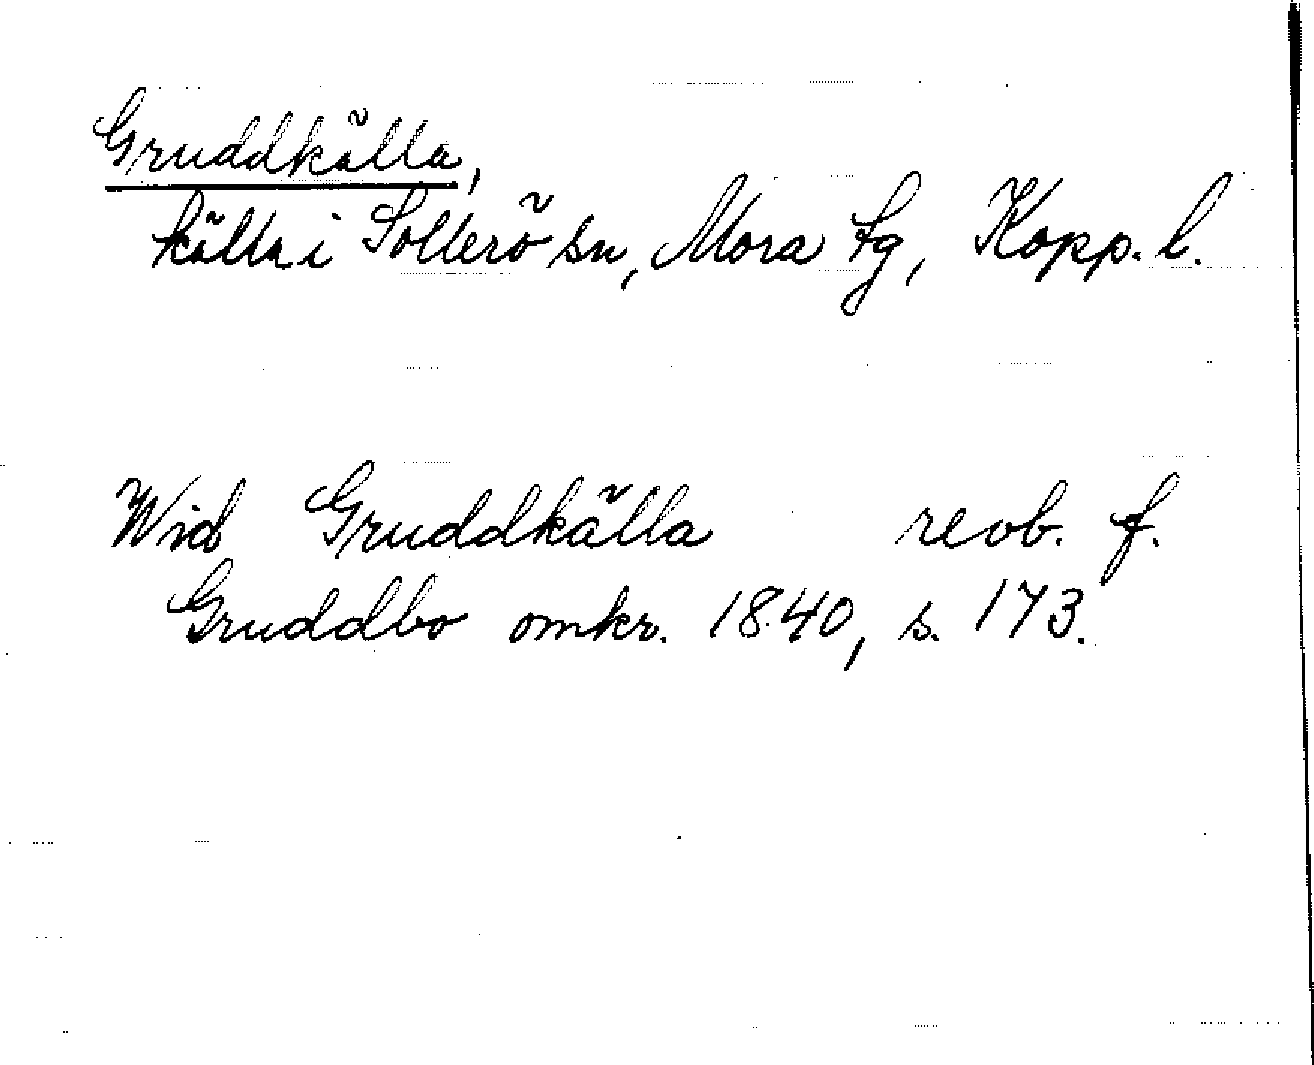 Gruddkälla,
källa i Sollerö sn, Mora tg, Kopp. l.
Wid Gruddkälla revb. f.
Gruddbo omkr. 1840, s. 173.